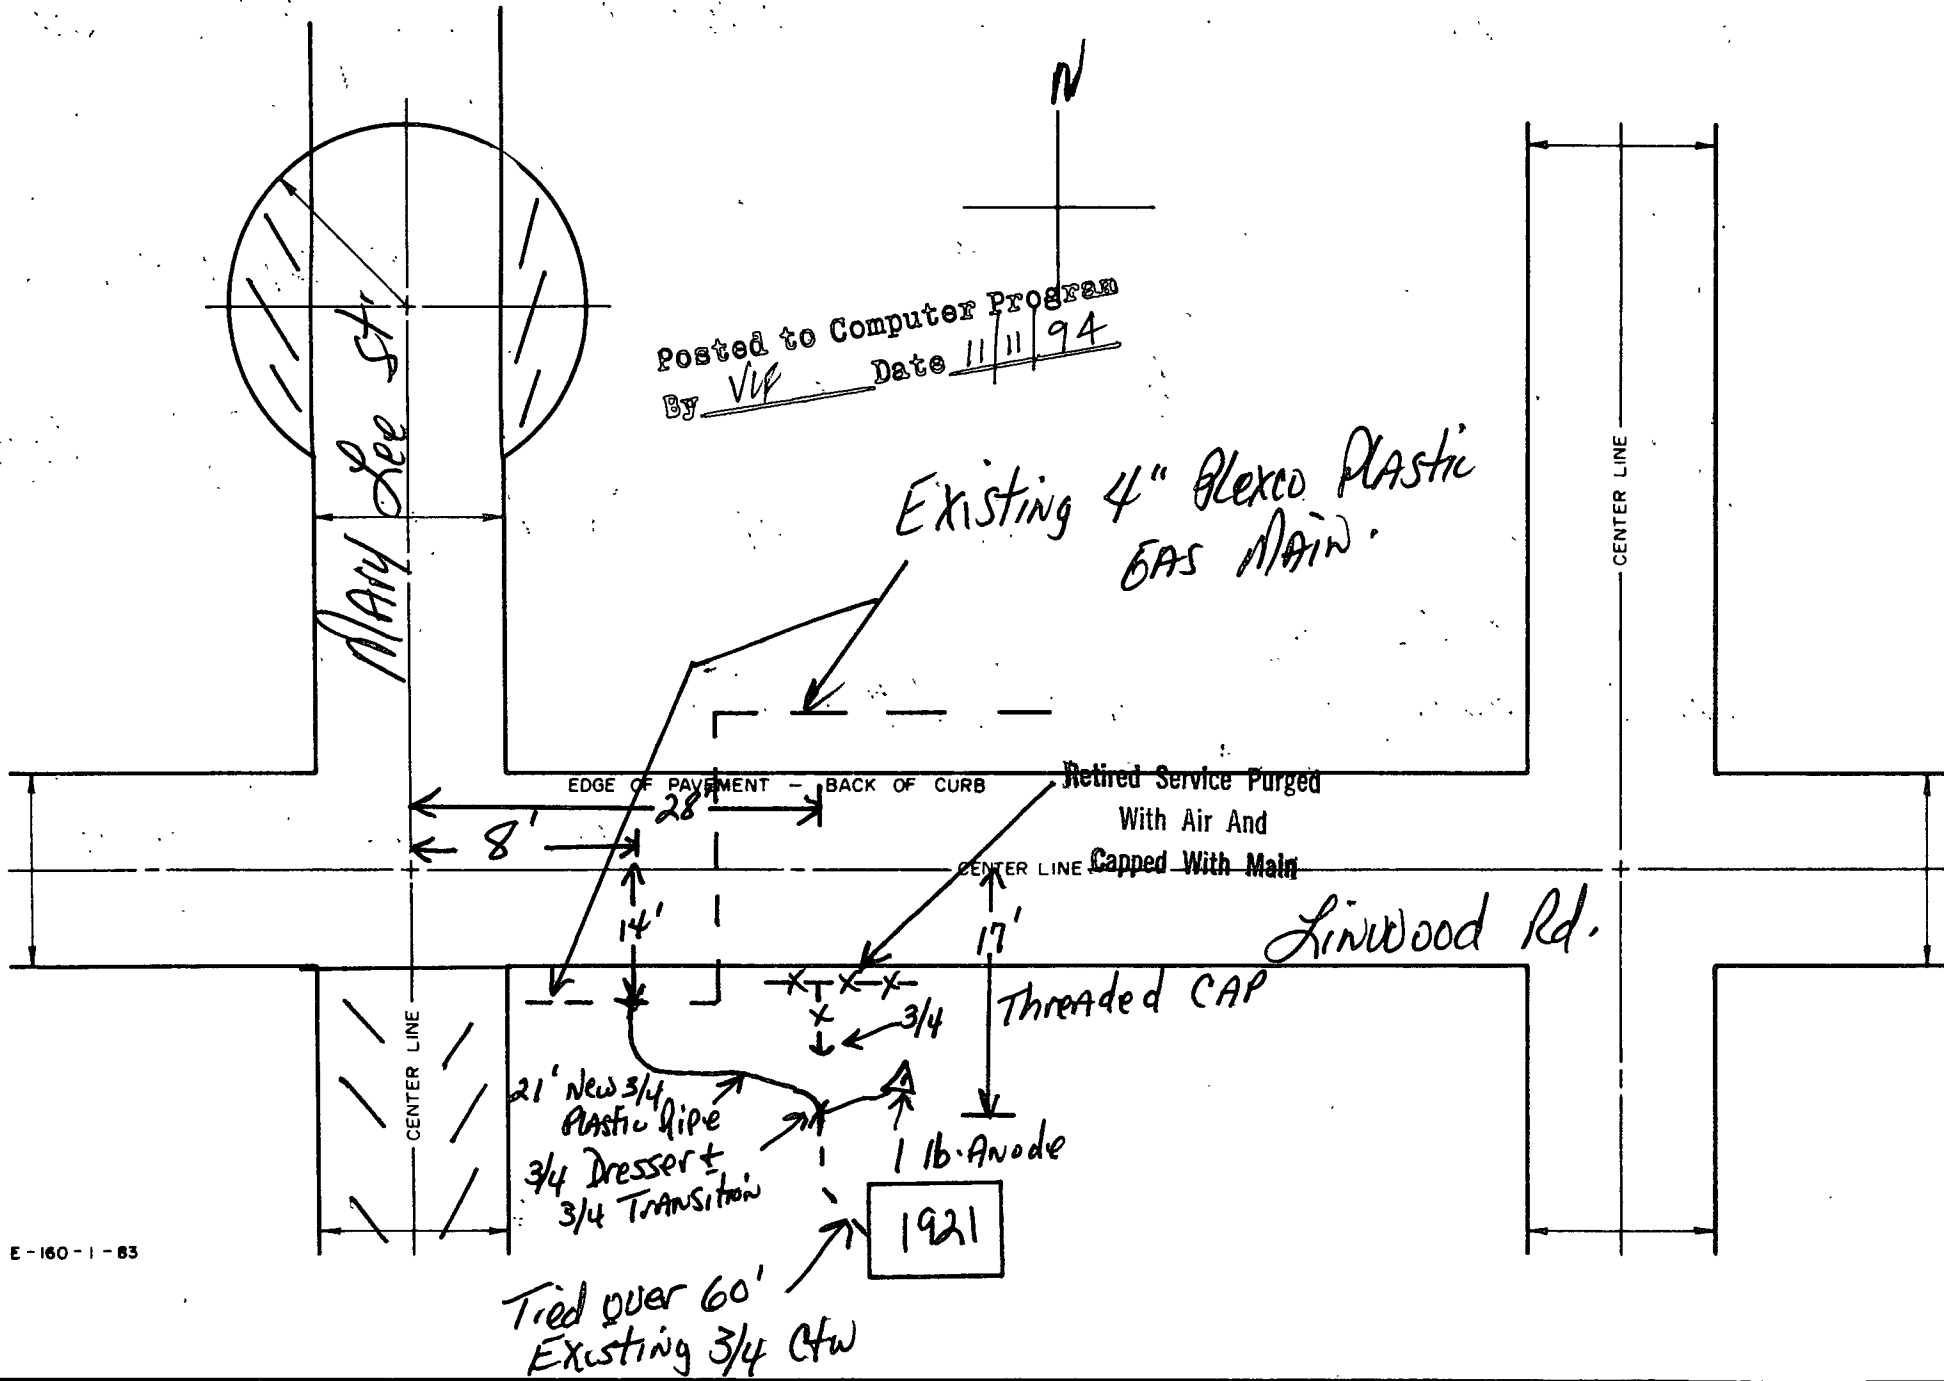 N
Posted to Computer Program
By Date 11 11 94
Mary Lee St
Existing 4" Plexco Plastic
GAS MAIN.
CENTER LINE
EDGE OF PAVEMENT - BACK OF CURB
28'
8'
Retired Service Purged
With Air And
Capped With Main
CENTER LINE
14'
17'
Linwood Rd.
Threaded CAP
3/4
CENTER LINE
21' New 3/4
Plastic Pipe
3/4 Dresser &
3/4 Transition
1 lb. Anode
1921
E-160-1-83
Tied over 60'
Existing 3/4 Ctw